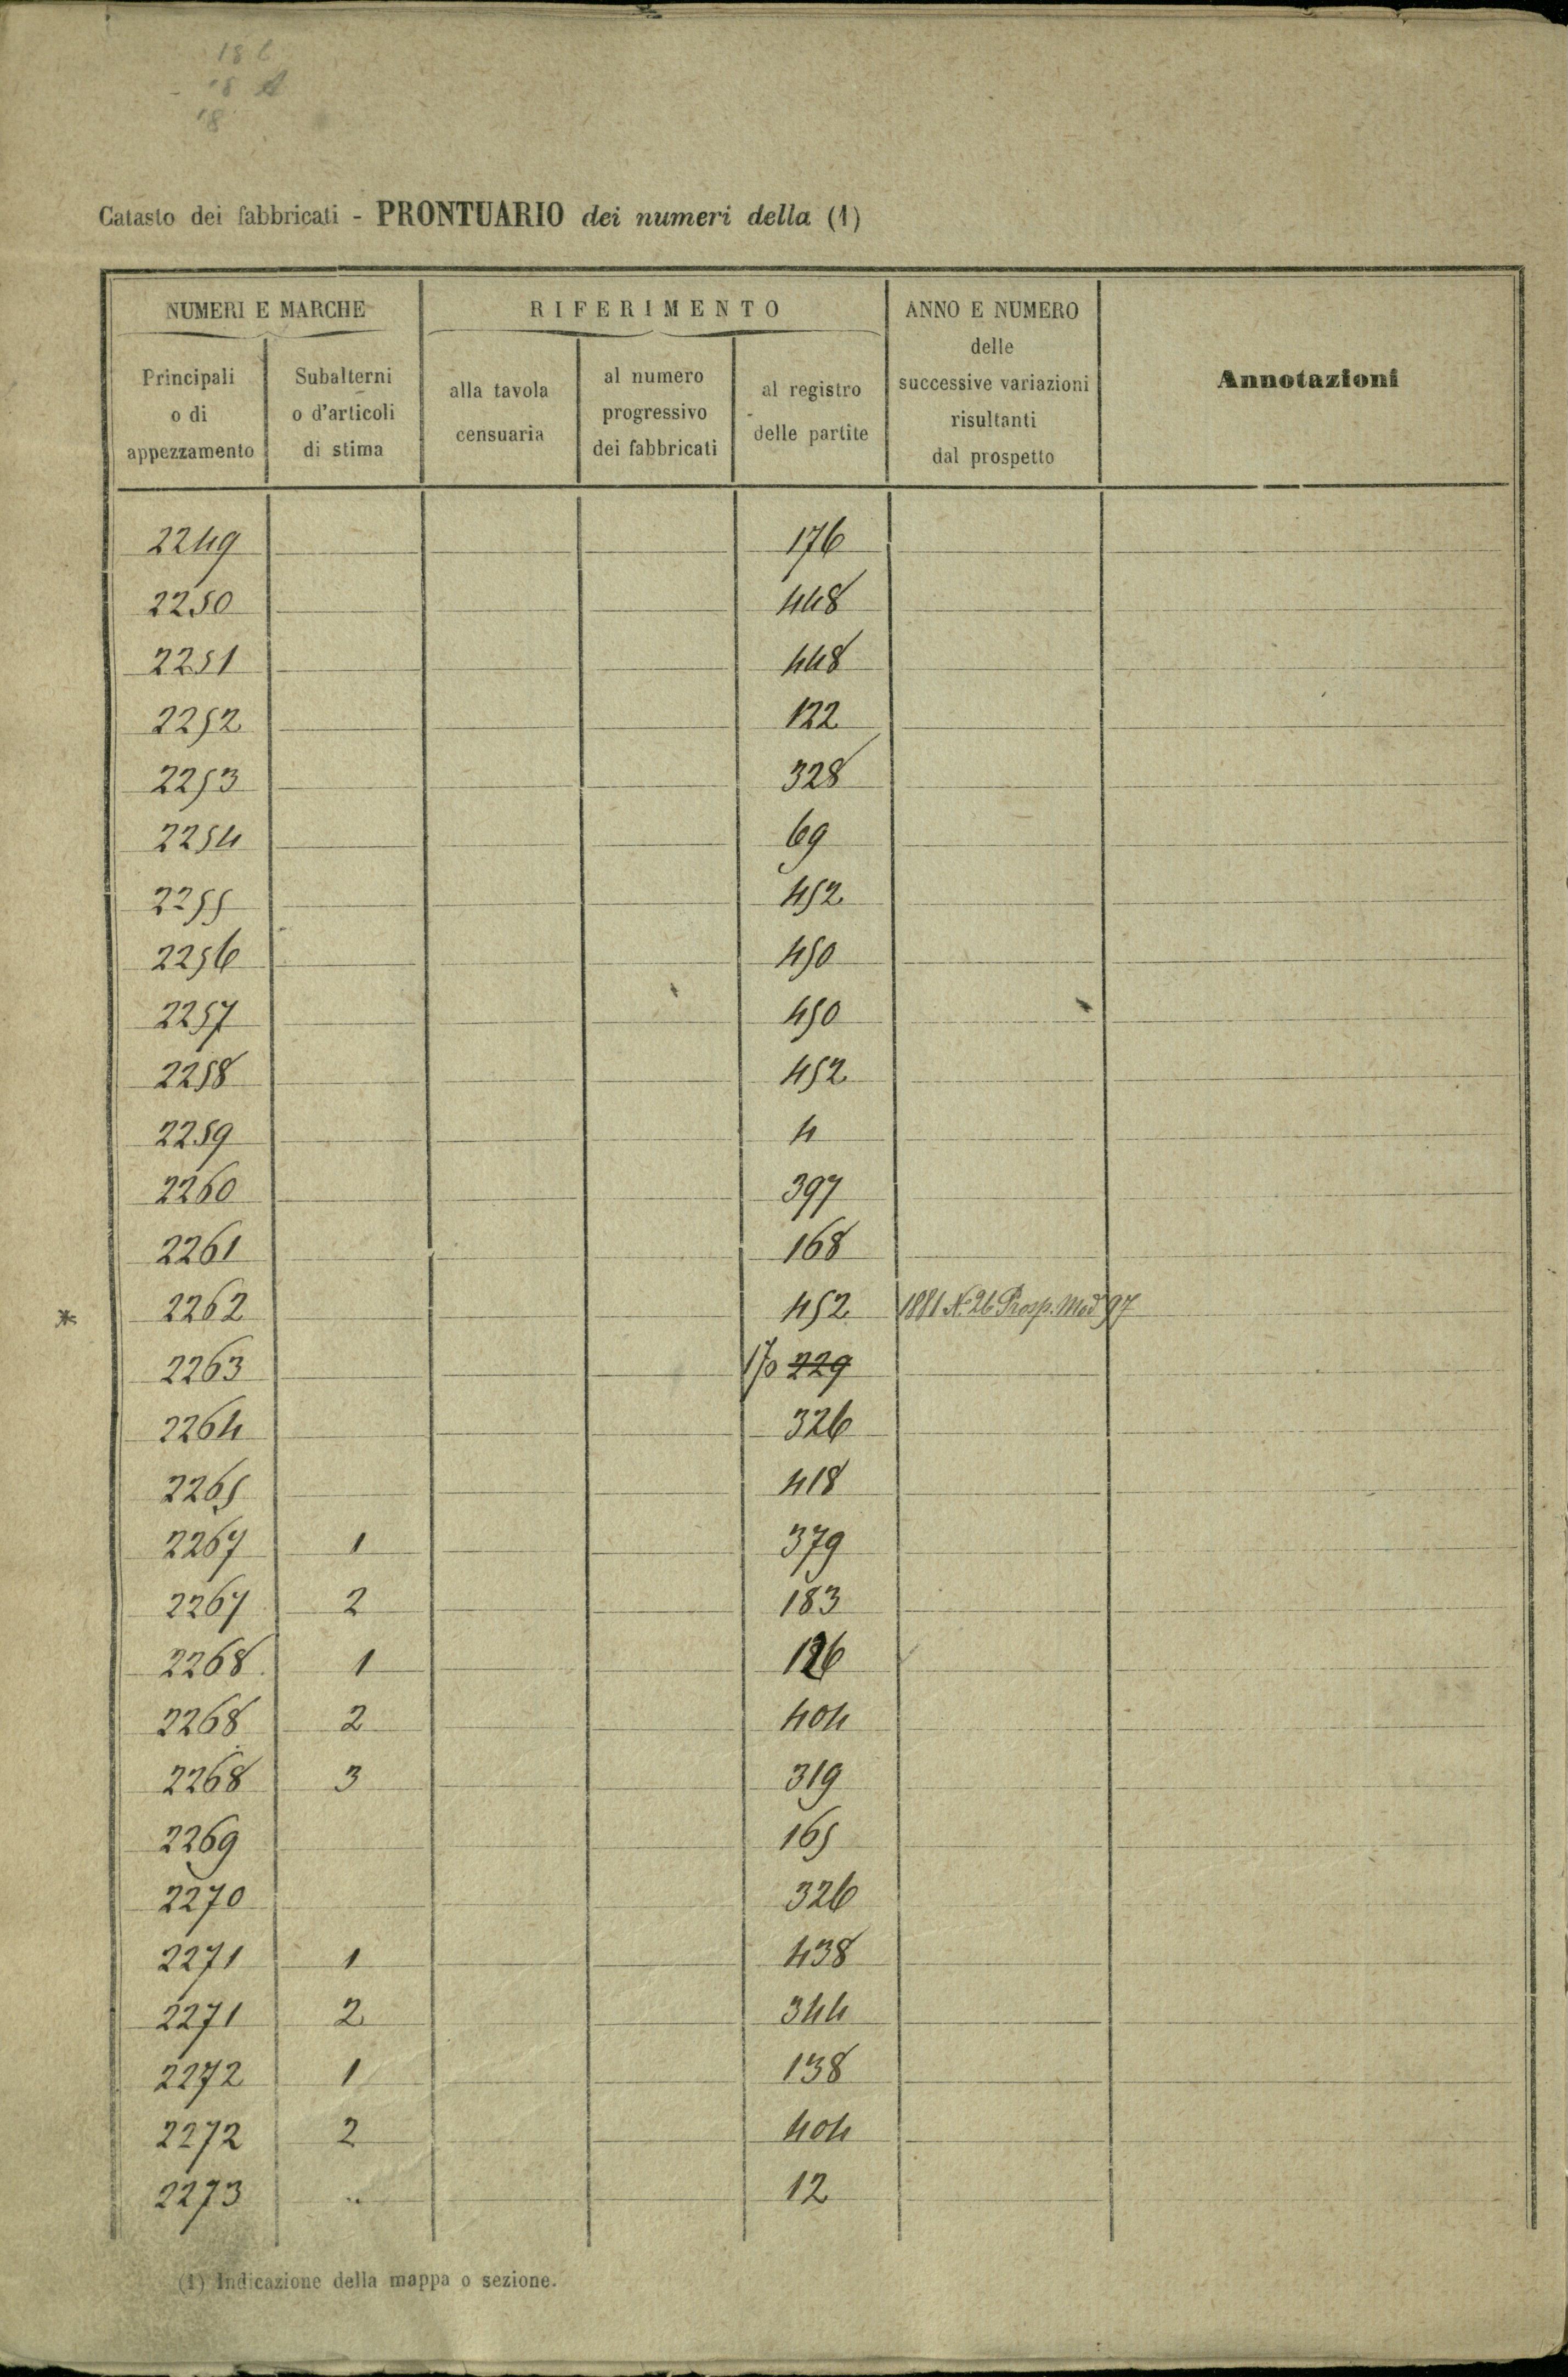 Catasto dei fabbricati - PRONTUARIO dei numeri della (1)
NUMERI E MARCHE
Principali
o di
appezzamento
Subalterni
o d'articoli
di stima
RIFERIMENTO
alla tavola
censuaria
al numero
progressivo
dei fabbricati
al registro
delle partite
ANNO E NUMERO
delle
successive variazioni
risultanti
dal prospetto
Annotazioni
2249 176
2250 448
2251 448
2252 122
2253 328
2254 69
2255 452
2256 450
2257 450
2258 452
2259 4
2260 397
2261 168
* 2262 452 1881 N. 26 Prosp. Mod 97
2263 170 229
2264 326
2265 418
2267 1 379
2267 2 183
2268 1 126
2268 2 404
2268 3 319
2269 165
2270 326
2271 1 438
2271 2 344
2272 1 138
2272 2 404
2273 .. 12
(1) Indicazione della mappa o sezione.